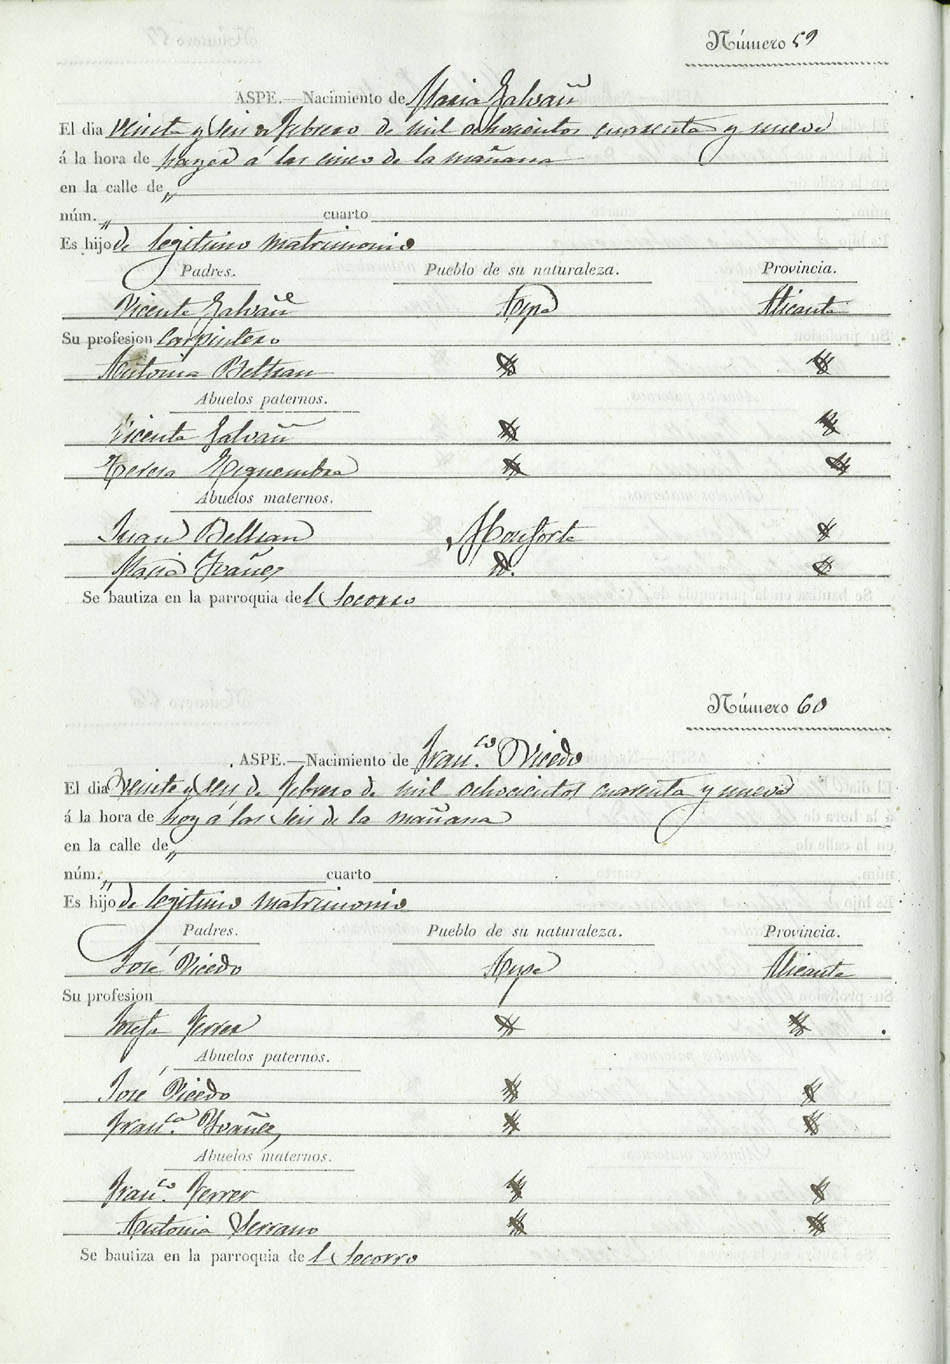 Número 59
ASPE.—Nacimiento de Maria Galvañ
El dia veinte y seis de febrero de mil ochocientos cuarenta y nueve
á la hora de hoy á las cinco de la mañana
en la calle de „
núm. „ cuarto
Es hijo de legitimo matrimonio
Padres. Pueblo de su naturaleza. Provincia.
Vicente Galvañ Aspe Alicante
Su profesion Carpintero
Antonia Beltran
Abuelos paternos.
Vicente Galvañ
Teresa
Abuelos maternos.
Juan Beltran Monforte
Maria Ybañez Yd.
Se bautiza en la parroquia del Socorro
Número 60
ASPE.—Nacimiento de Fran.co Vicedo
El dia veinte y seis de febrero de mil ochocientos cuarenta y nueve
á la hora de hoy á las seis de la mañana
en la calle de „
núm. „ cuarto
Es hijo de legitimo matrimonio
Padres. Pueblo de su naturaleza. Provincia.
José Vicedo Aspe Alicante
Su profesion
Josefa Ferrer
Abuelos paternos.
José Vicedo
Fran.ca Ybañez
Abuelos maternos.
Fran.co Ferrer
Antonia Serrano
Se bautiza en la parroquia de l Socorro